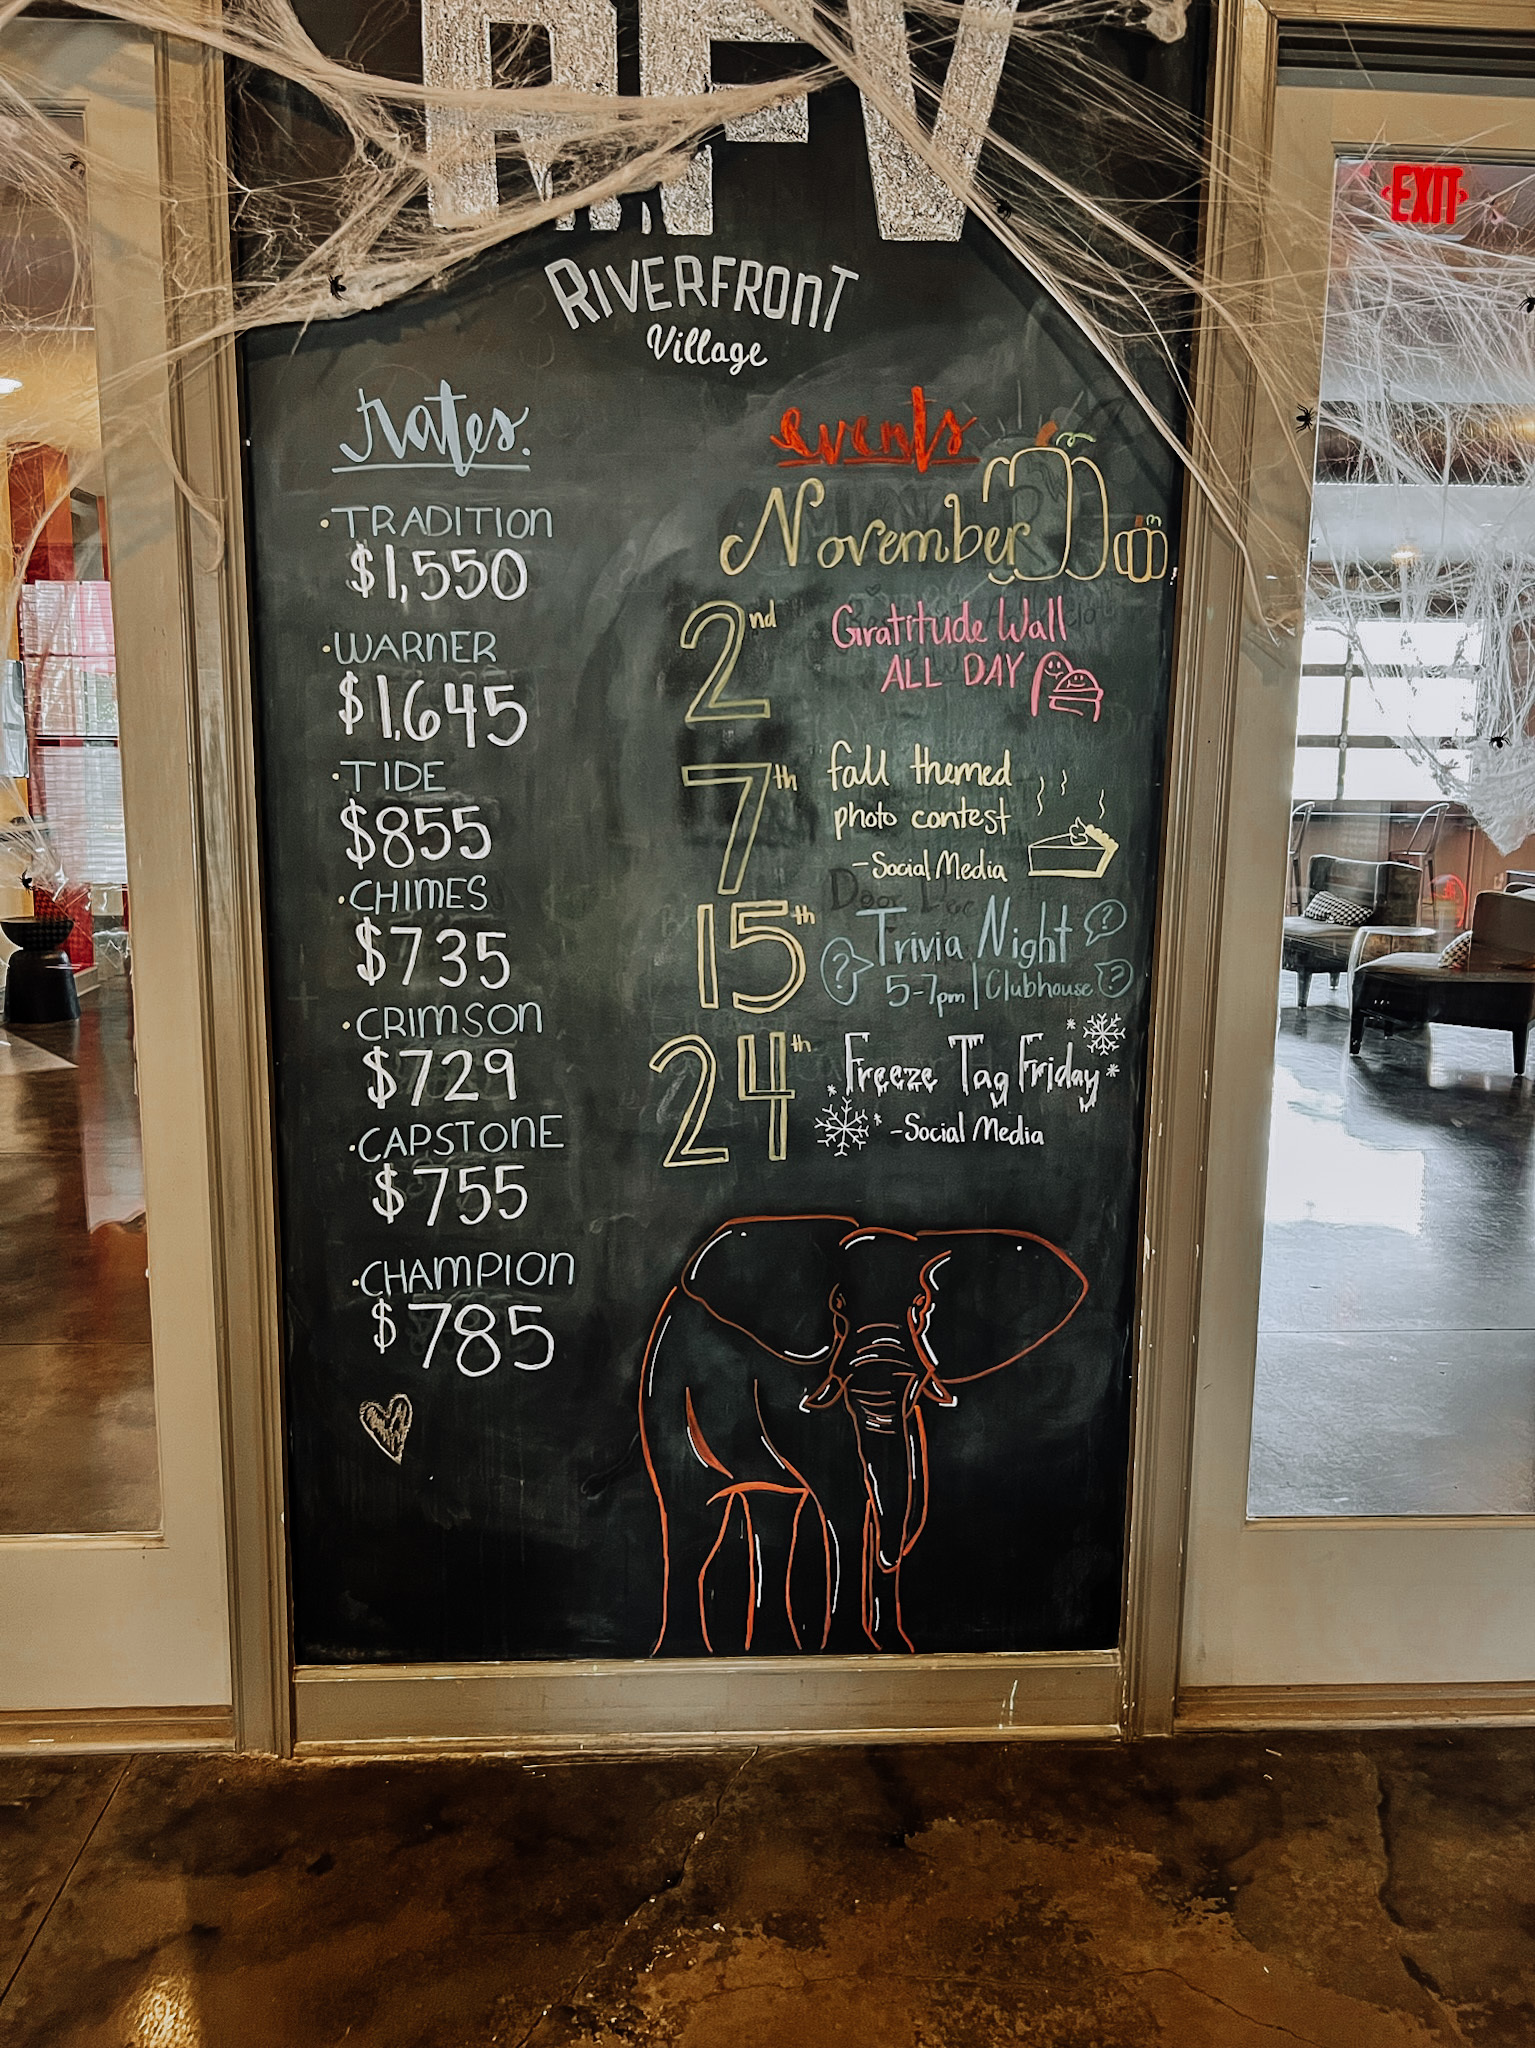 RFV
RIVERFRONT
Village
rates.
•TRADITION
$1,550
•WARNER
$1,645
•TIDE
$855
•CHIMES
$735
•CRIMSON
$729
•CAPSTONE
$755
•CHAMPION
$785
events
November
2nd
Gratitude Wall
ALL DAY
7th
fall themed
photo contest
-Social Media
15th
? Trivia Night ?
5-7pm | Clubhouse ?
24th
Freeze Tag Friday
-Social Media
EXIT